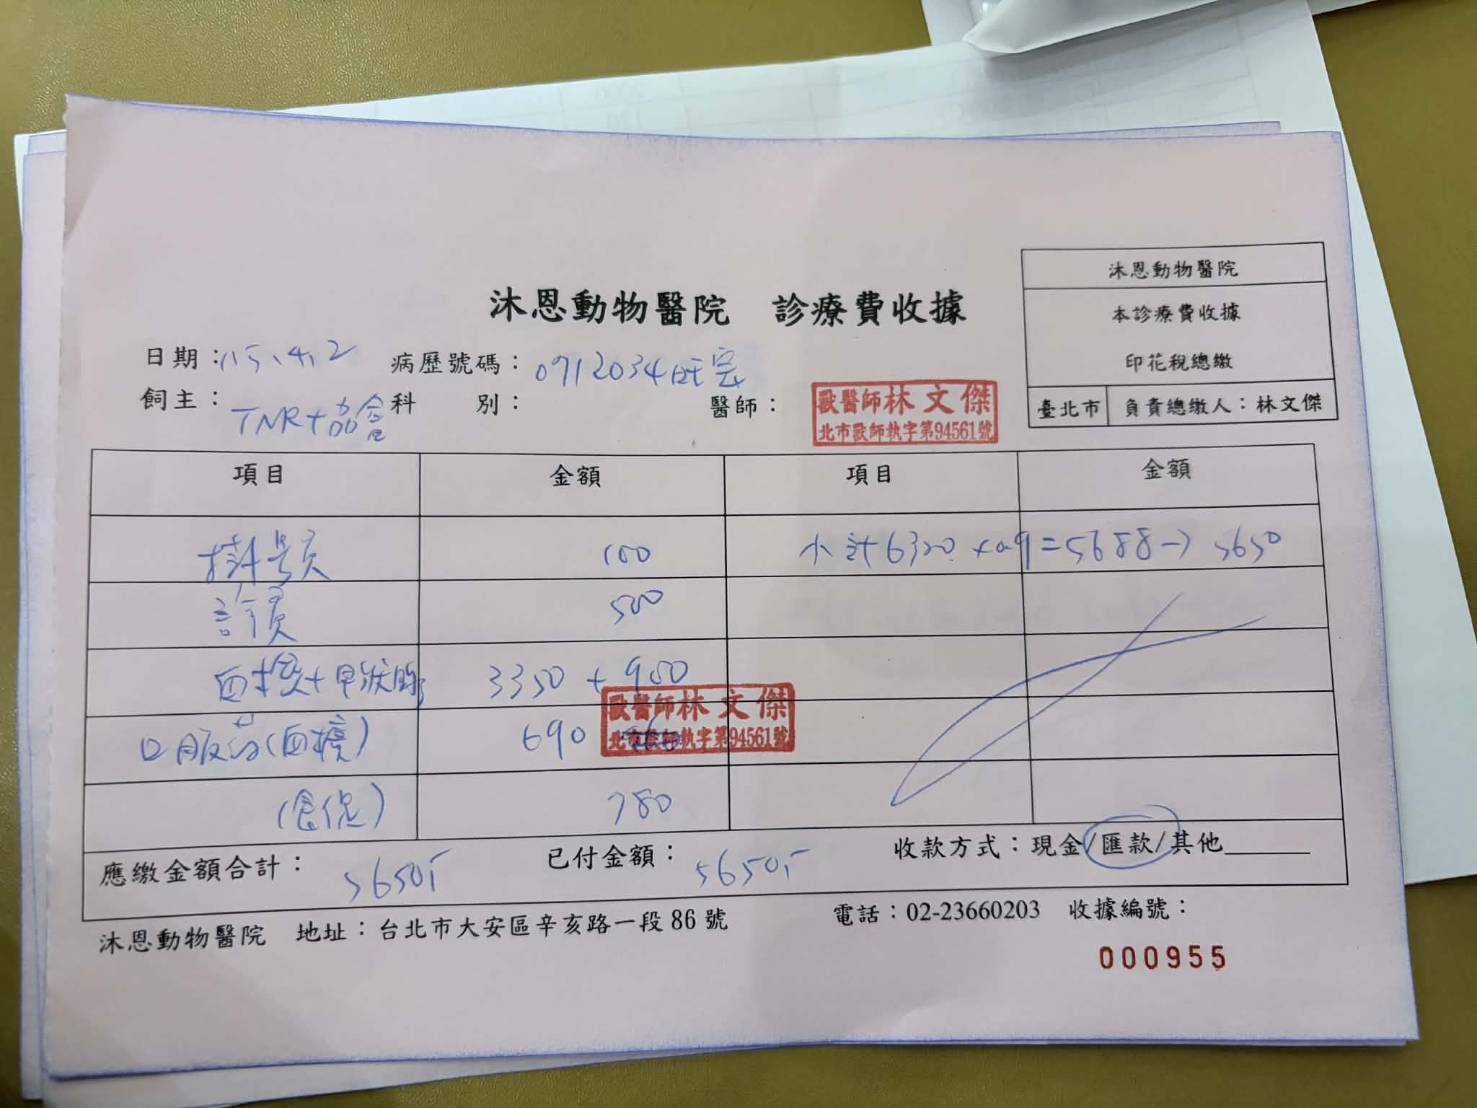 沐恩動物醫院
本診療費收據
印花稅總繳
臺北市 負責總繳人：林文傑
沐恩動物醫院 診療費收據
日期：115.4.2 病歷號碼：0912034
飼主：TNR+協會 科 別： 醫師：
獸醫師林文傑
北市獸師執字第94561號
項目 金額 項目 金額
掛號費 100 小計6320×0.9=5688→5650
診費 500
血檢+甲狀腺 3350+950
獸醫師林文傑
北市獸師執字第94561號
口服藥(血檢) 690
780
應繳金額合計：5650 已付金額：5650 收款方式：現金/匯款/其他
沐恩動物醫院 地址：台北市大安區辛亥路一段86號 電話：02-23660203 收據編號：
000955